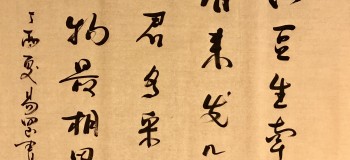 豆生南
来发几
君多采
物最相思
丁酉夏易墨